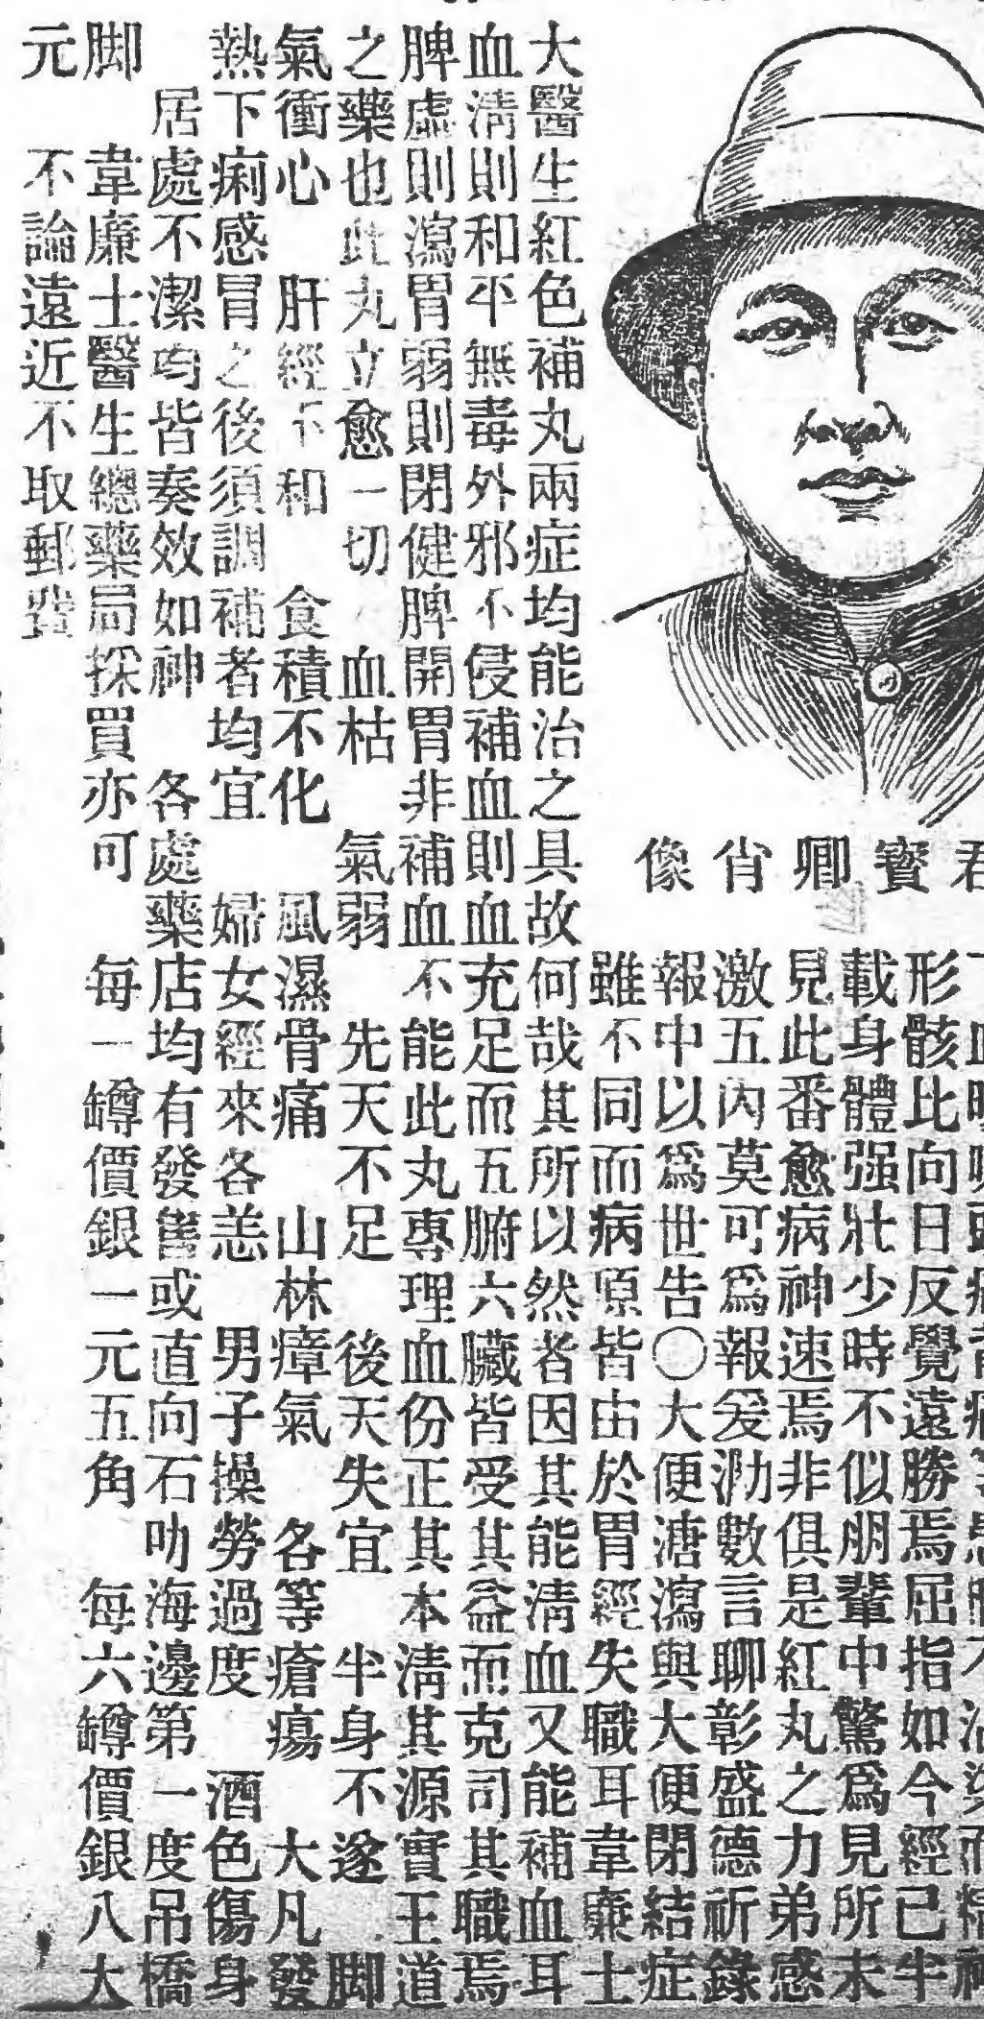 君寶卿肖像
形骸比向日反覺遠勝焉屈指如今經已半
載身體强壯少時不似朋輩中驚爲見所未
見此番愈病神速焉非俱是紅丸之力弟感
激五內莫可爲報爰泐數言聊彰盛德祈錄
報中以爲世告〇大便溏瀉與大便閉結症
雖不同而病原皆由於胃經失職耳韋廉士
大醫生紅色補丸兩症均能治之具故何哉其所以然者因其能淸血又能補血耳
血淸則和平無毒外邪不侵補血則血充足而五腑六臟皆受其益而克司其職焉
脾虛則瀉胃弱則閉健脾開胃非補血不能此丸專理血份正其本淸其源實王道
之藥也此丸立愈一切 血枯 氣弱 先天不足 後天失宜 半身不遂 脚
氣衝心 肝經不和 食積不化 風濕骨痛 山林瘴氣 各等瘡瘍 大凡發
熱下痢感冒之後須調補者均宜 婦女經來各恙 男子操勞過度 酒色傷身
居處不潔均皆奏效如神 各處藥店均有發售或直向石叻海邊第一度吊橋
脚 韋廉士醫生總藥局採買亦可 每一罇價銀一元五角 每六罇價銀八大
元 不論遠近不取郵費